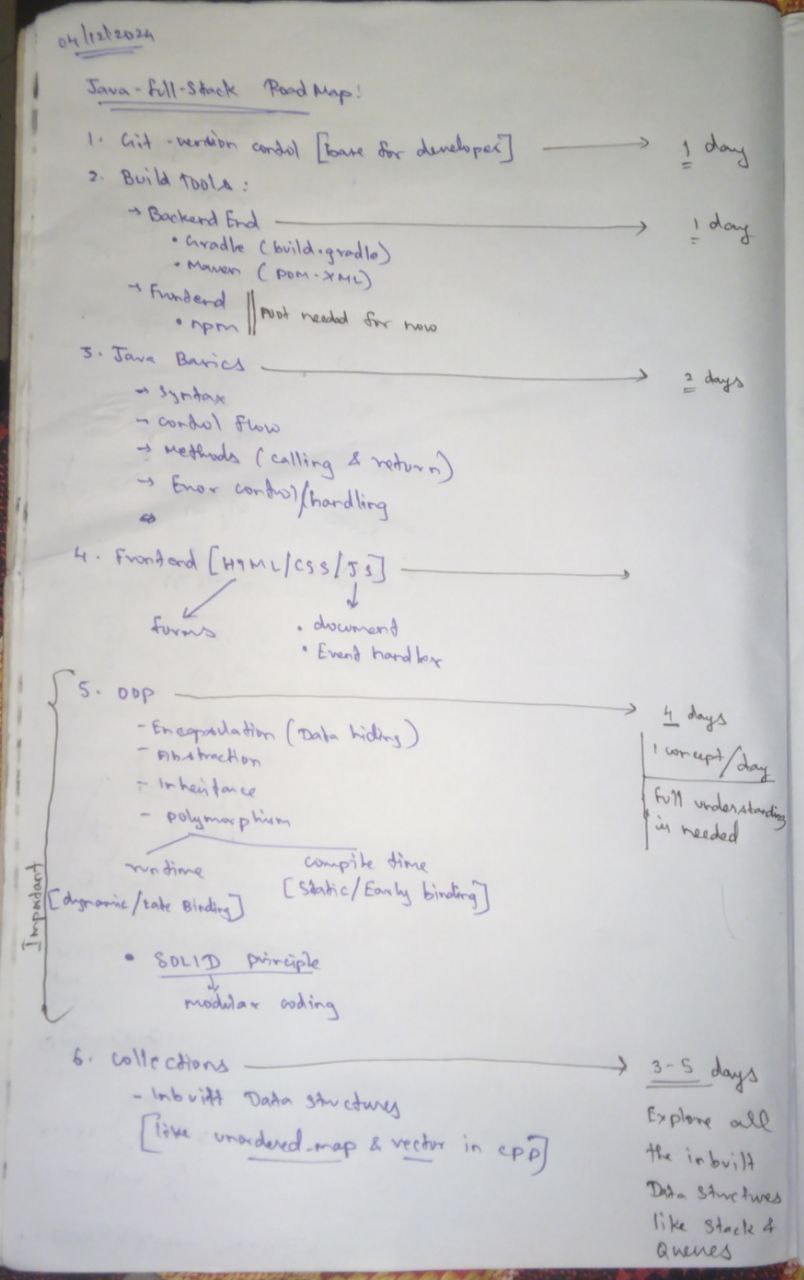 04/12/2024
Java-full-Stack Road Map:
1. Git -version control [base for developer] → 1 day
2. Build Tools:
→ Backend End → 1 day
• Gradle (build.gradle)
• Maven (POM-XML)
→ Frontend
• npm || Not needed for now
3. Java Basics → 2 days
→ Syntax
→ control flow
→ Methods (calling & return)
→ Error control/handling
⇔
4. Frontend [HTML/CSS/JS] →
forms
• document
• Event handler
Important
5. OOP → 4 days
- Encapsulation (Data hiding)
- Abstraction
- Inheritance
- polymorphism
1 concept/day
full understanding
is needed
runtime compile time
[dynamic/Late Binding] [Static/Early binding]
• SOLID principle
modular coding
6. collections → 3-5 days
- Inbuilt Data structures
[like unordered-map & vector in cpp]
Explore all
the inbuilt
Data structures
like Stack &
Queues